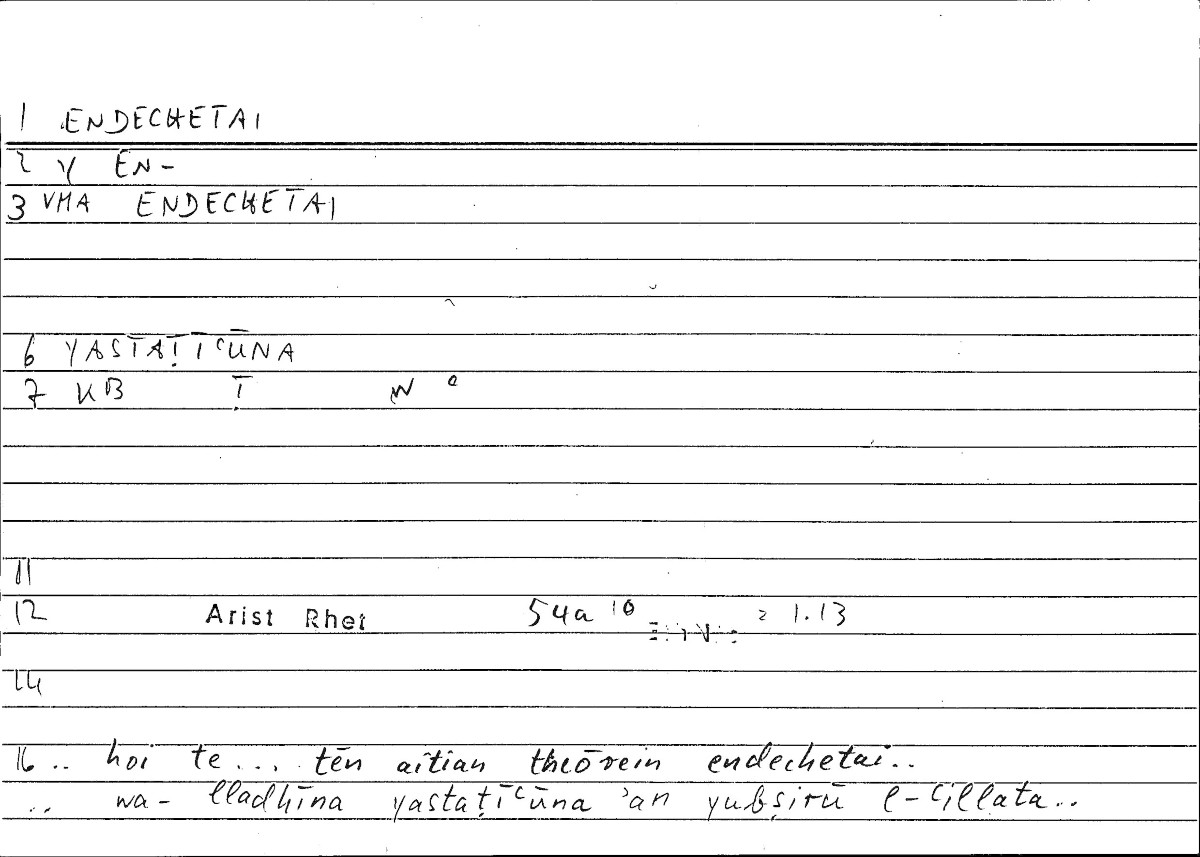 1 ENDECHETAI
2 Y EN-
3 VMA ENDECHETAI
6 YASTAṬĪʿŪNA
7 KB Ṭ W ʿ
11
12 Arist Rhet 54a 10 = 1.13
14
16 .. hoi te ... tēn aitian theōrein endechetai..
.. wa- lladhīna yastaṭīʿūna ʾan yubṣirū l-ʿillata..